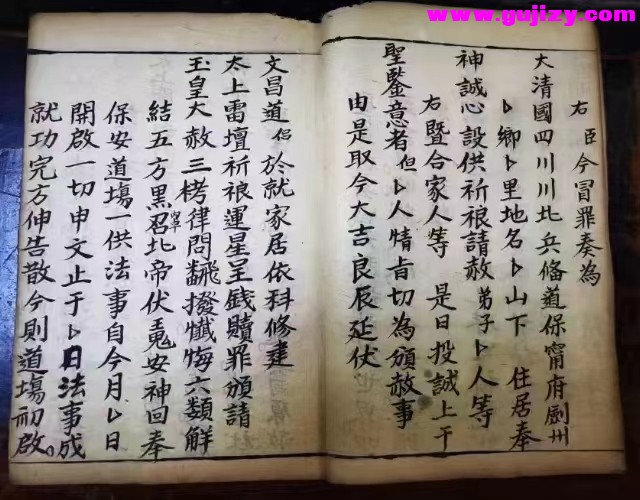 www.gujizy.com
右臣今冒罪奏為
大清國四川川北兵俻道保甯府劍州
卜鄉卜里地名卜山下 住居奉
神誠心設供祈禳請赦弟子卜人等
右暨合家人等 是日投誠上干
聖鑒意者但卜人情旨切為頒赦事
由是取今大吉良辰延伏
文昌道侣於就家居依科修建
太上雷壇祈禳運星呈錢贖罪頒請
玉皇大赦三拷律問翻撥懺悔六類解
結五方黑召北帝伏鬼安神回奉
保安道塲一供法事自今月卜日
開啟一切申文止于卜日法事成
就功完方伸告散今則道塲初啟